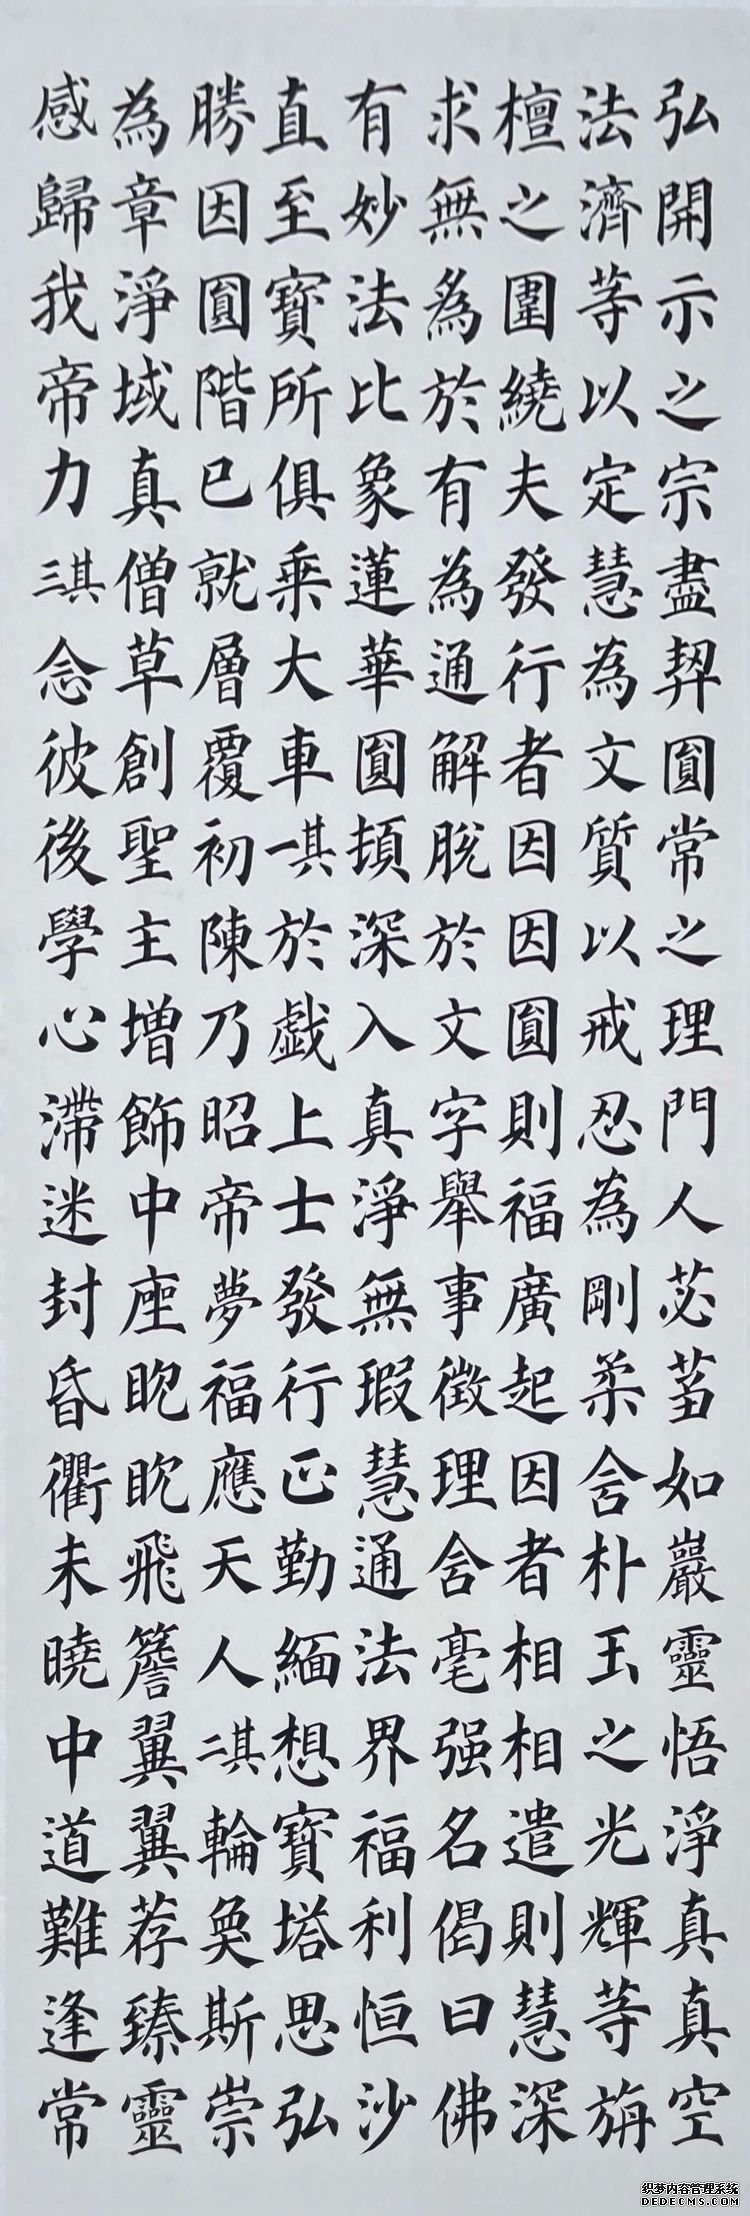 弘開示之宗盡契圓常之理門人苾蒭如巖靈悟淨真真空
法濟等以定慧為文質以戒忍為剛柔含朴玉之光輝等旃
檀之圍繞夫發行者因因圓則福廣起因者相相遣則慧深
求無為於有為通解脫於文字舉事徵理含毫强名偈曰佛
有妙法比象蓮華圓頓深入真淨無瑕慧通法界福利恒沙
直至寶所俱乘大車一其於戲上士發行正勤緬想寶塔思弘
勝因圓階已就層覆初陳乃昭帝夢福應天人二其輪奐斯崇
為章淨域真僧草創聖主增飾中座眈眈飛簷翼翼荐臻靈
感歸我帝力三其念彼後學心滯迷封昏衢未曉中道難逢常
织梦内容管理系统
DEDECMS.COM